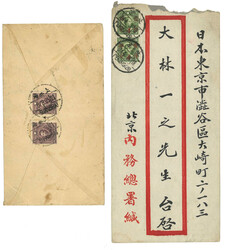 日本東京市澁谷區大崎町二ノ一八三
大林一之先生 台啓
北京內務總署緘